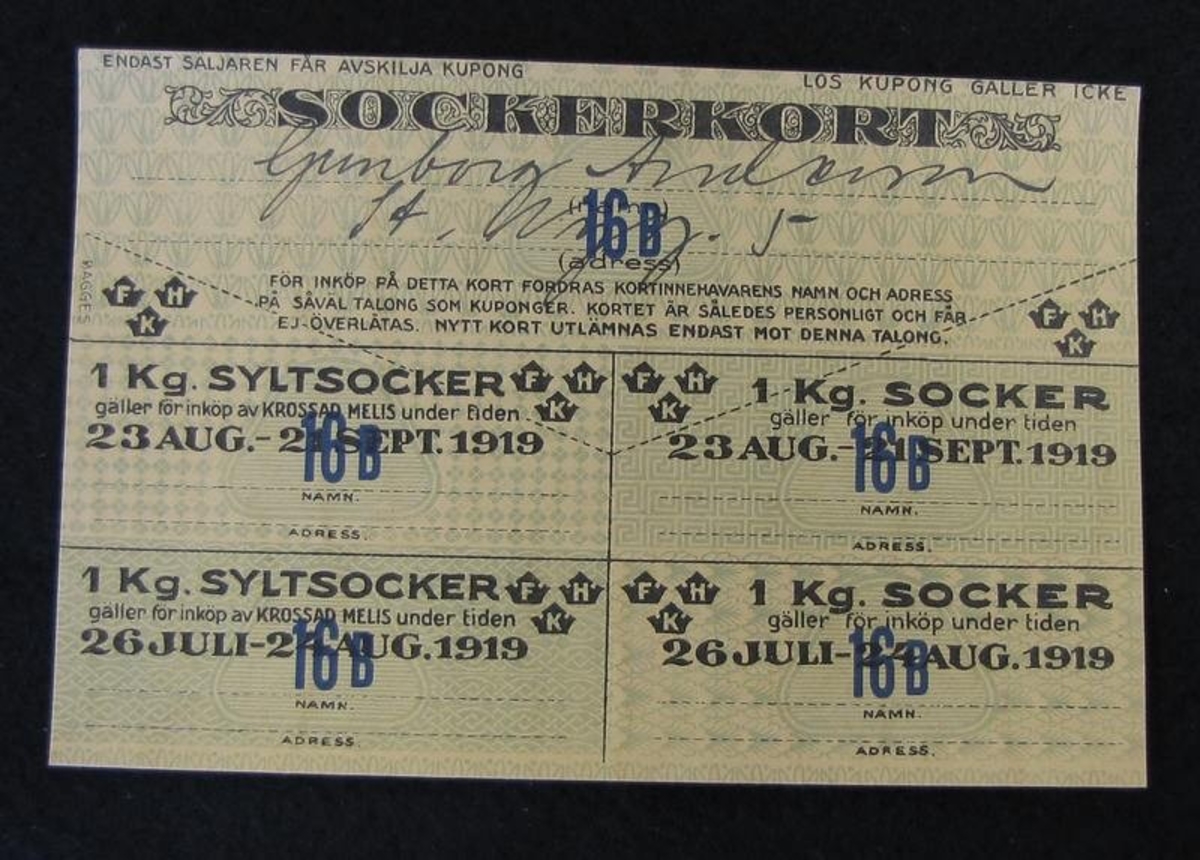 ENDAST SÄLJAREN FÅR AVSKILJA KUPONG
LÖS KUPONG GÄLLER ICKE
SOCKERKORT
Gunborg Andersson
(namn)
16 B
St. 5
(adress)
WAGGES
FÖR INKÖP PÅ DETTA KORT FORDRAS KORTINNEHAVARENS NAMN OCH ADRESS
PÅ SÅVÄL TALONG SOM KUPONGER. KORTET ÄR SÅLEDES PERSONLIGT OCH FÅR
EJ ÖVERLÅTAS. NYTT KORT UTLÄMNAS ENDAST MOT DENNA TALONG.
F H
K
F H
K
1 Kg. SYLTSOCKER F H
gäller för inköp av KROSSAD MELIS under tiden K
23 AUG.-21 SEPT. 1919
16 B
NAMN.
ADRESS.
F H 1 Kg. SOCKER
K gäller för inköp under tiden
23 AUG.-21 SEPT. 1919
16 B
NAMN.
ADRESS.
1 Kg. SYLTSOCKER F H
gäller för inköp av KROSSAD MELIS under tiden K
26 JULI-24 AUG. 1919
16 B
NAMN.
ADRESS.
F H 1 Kg. SOCKER
K gäller för inköp under tiden
26 JULI-24 AUG. 1919
16 B
NAMN.
ADRESS.